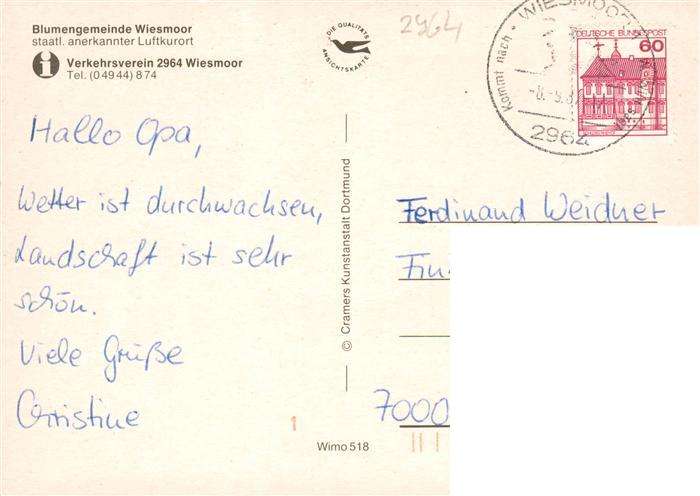 Blumengemeinde Wiesmoor
staatl. anerkannter Luftkurort
i Verkehrsverein 2964 Wiesmoor
Tel. (04944) 874
DIE QUALITÄTS
ANSICHTSKARTE
2964
Kommt nach · WIESMOOR
2964
DEUTSCHE BUNDESPOST
60
Hallo Opa,
Wetter ist durchwachsen,
Landschaft ist sehr
schön.
Viele Grüße
Christine
© Cramers Kunstanstalt Dortmund
Ferdinand Weidner
7000
1
Wimo 518